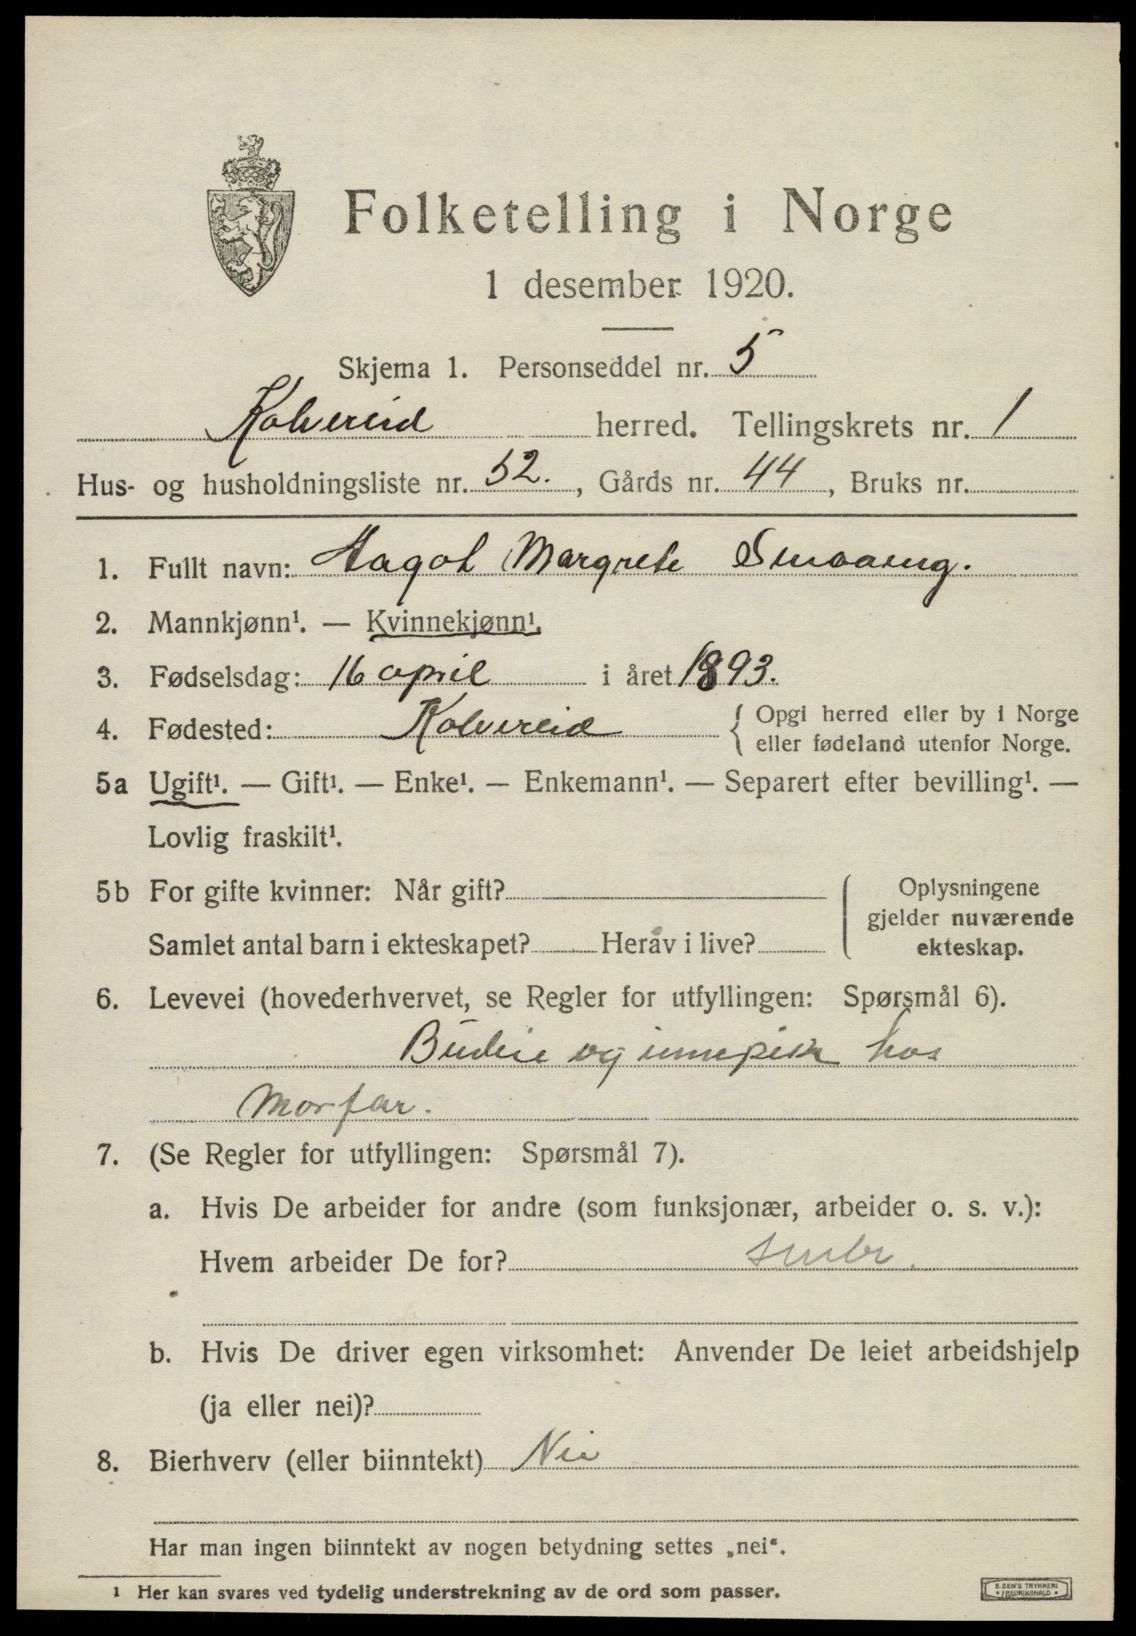 Folketelling i Norge
1 desember 1920.
Skjema 1. Personseddel nr. 5
Kolvereid herred. Tellingskrets nr. 1
Hus- og husholdningsliste nr. 52. , Gårds nr. 44 , Bruks nr.
1. Fullt navn: Aagot Margrete
2. Mannkjønn¹. — Kvinnekjønn¹.
3. Fødselsdag: 16 april i året 1893.
4. Fødested: Kolvereid { Opgi herred eller by i Norge
eller fødeland utenfor Norge.
5a Ugift¹. — Gift¹. — Enke¹. — Enkemann¹. — Separert efter bevilling¹. —
Lovlig fraskilt¹.
5b For gifte kvinner: Når gift?
Samlet antal barn i ekteskapet? Herav i live?
Oplysningene
gjelder nuværende
ekteskap.
6. Levevei (hovederhvervet, se Regler for utfyllingen: Spørsmål 6).
Budeie og innepike hos
Morfar.
7. (Se Regler for utfyllingen: Spørsmål 7).
a. Hvis De arbeider for andre (som funksjonær, arbeider o. s. v.):
Hvem arbeider De for?
b. Hvis De driver egen virksomhet: Anvender De leiet arbeidshjelp
(ja eller nei)?
8. Bierhverv (eller biinntekt) Nei
Har man ingen biinntekt av nogen betydning settes „nei“.
¹ Her kan svares ved tydelig understrekning av de ord som passer.
E. SEM'S TRYKKERI
FREDRIKSHALD